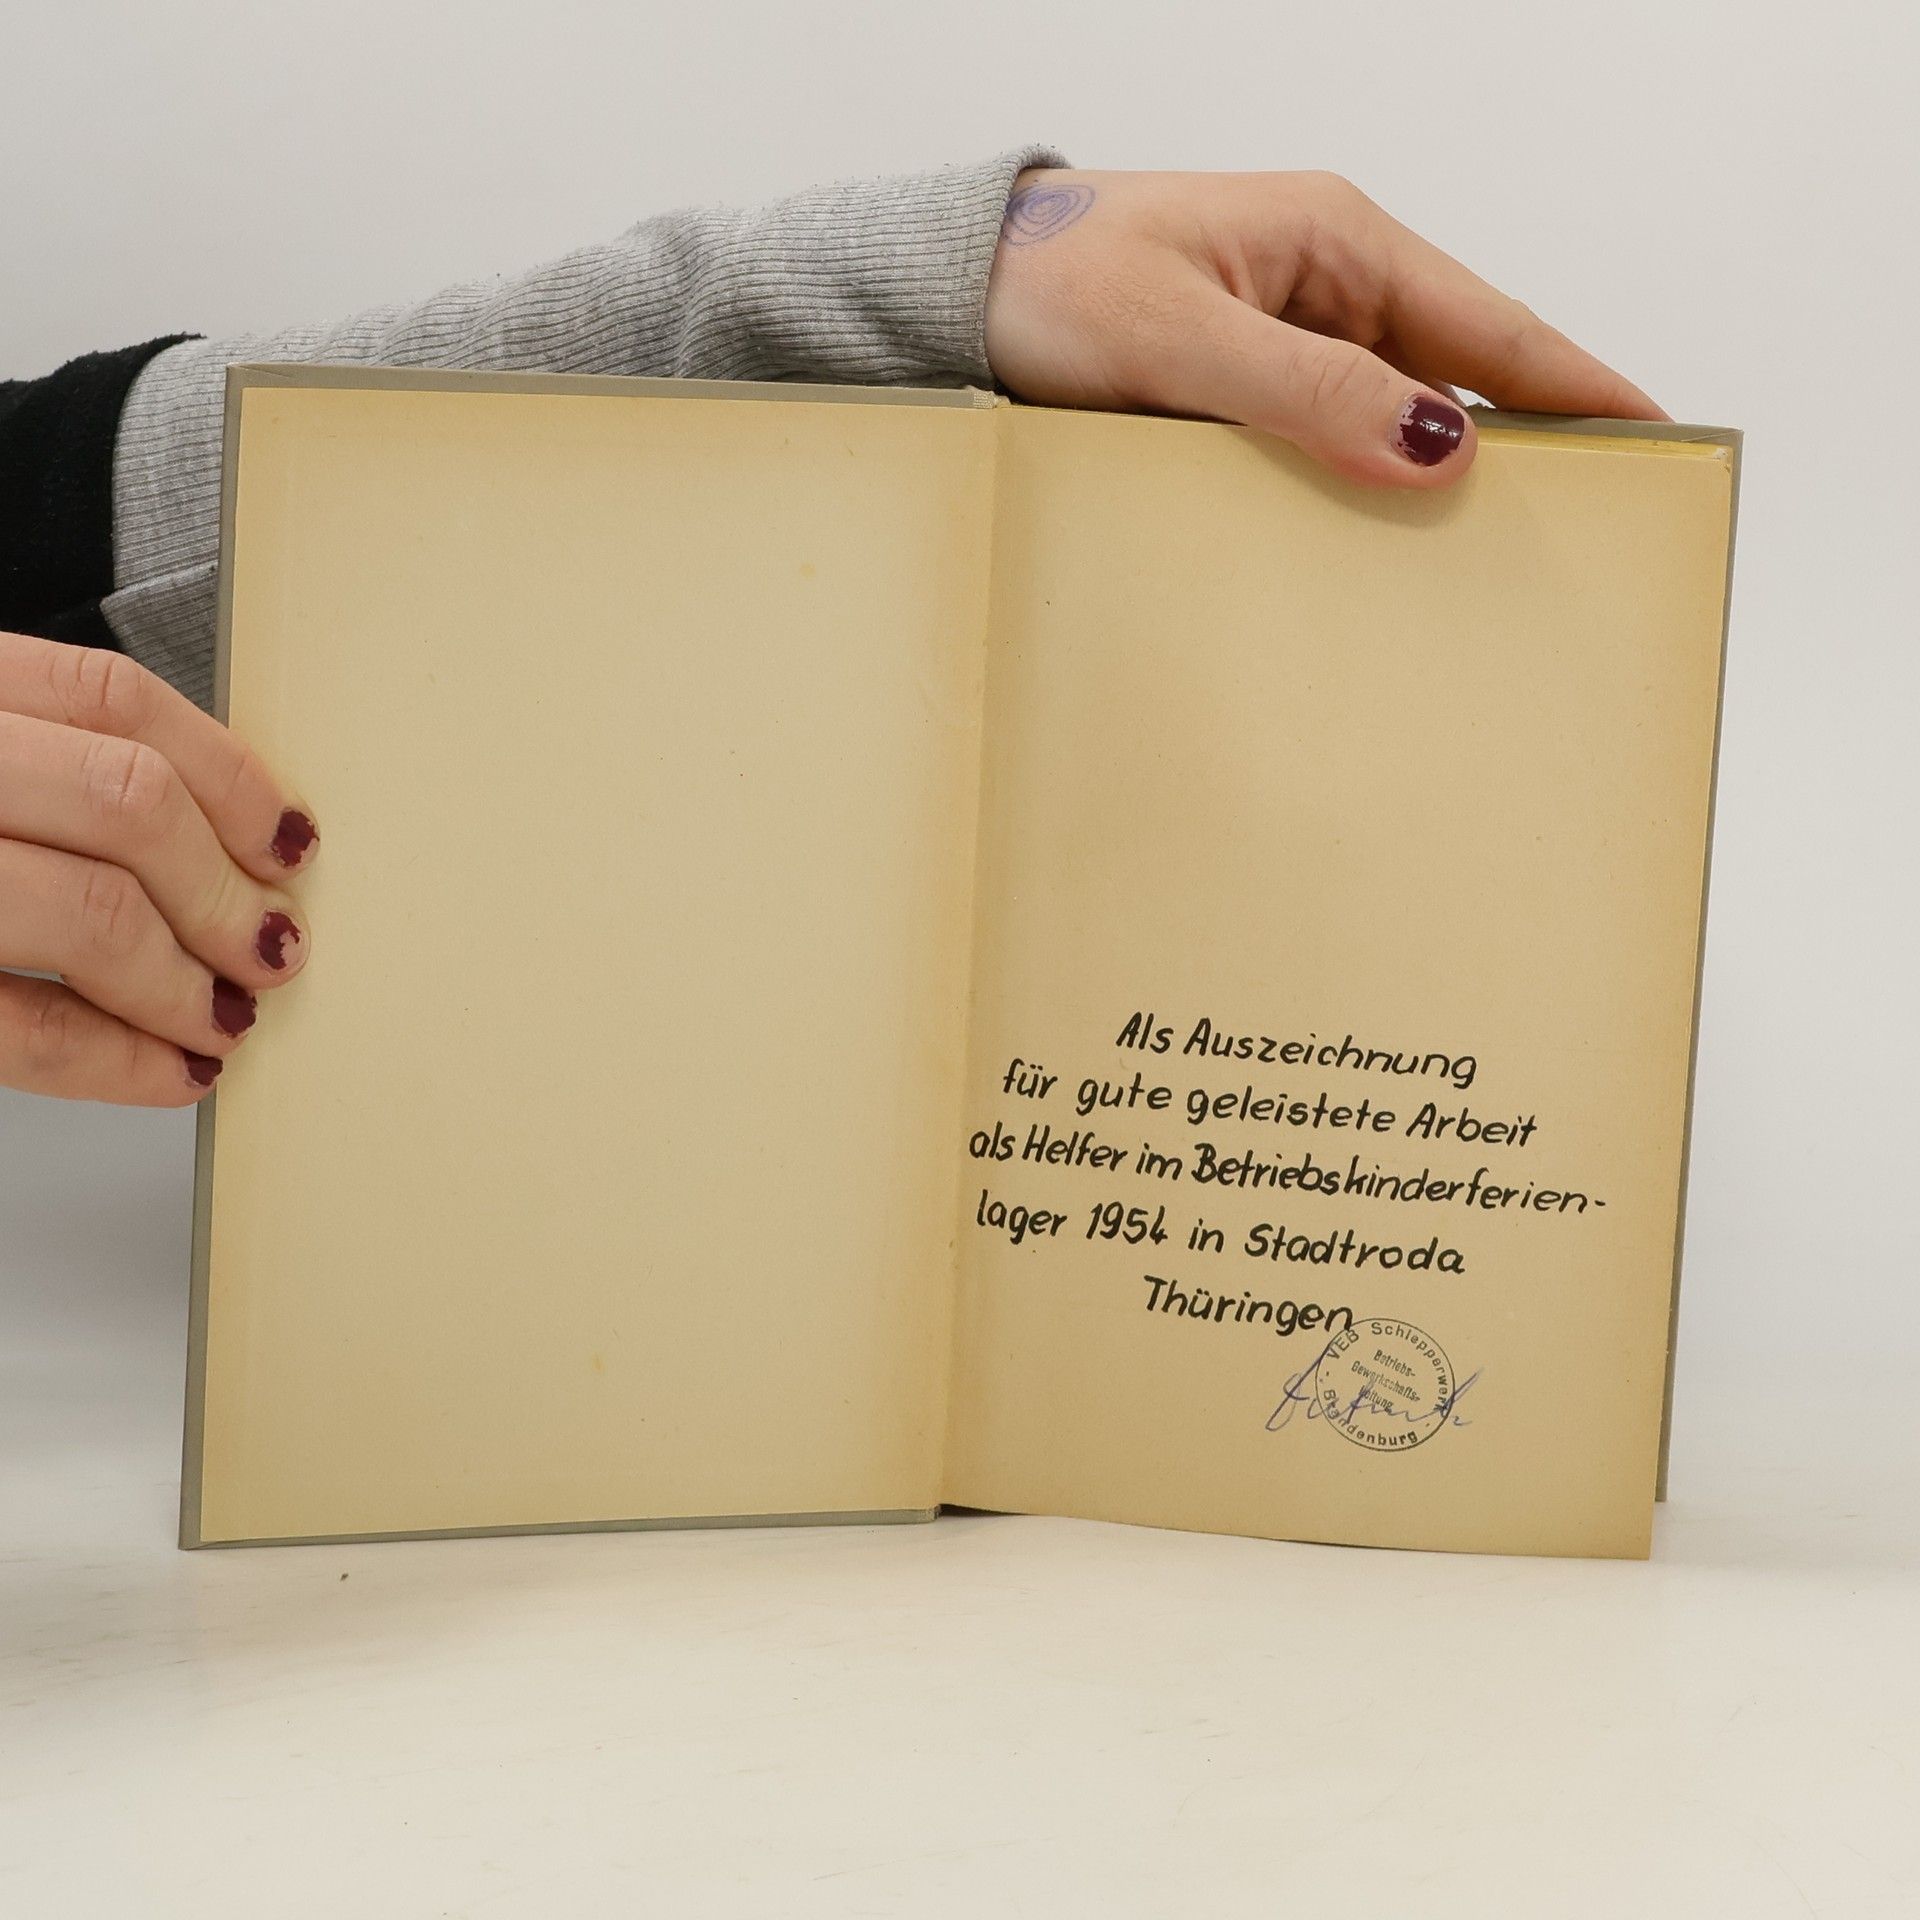 Als Auszeichnung
für gute geleistete Arbeit
als Helfer im Betriebskinderferien-
lager 1954 in Stadtroda
Thüringen
VEB Schlepperwerk
Betriebs-
Gewerkschafts-
Leitung
Brandenburg